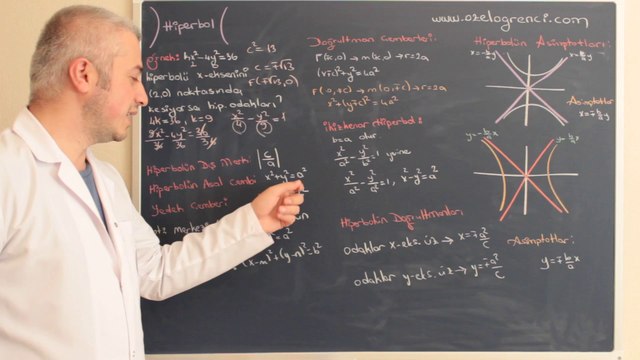 Hiperbol
www.ozelogrenci.com
Örnek: kx²-4y²=36
c²=13
hiperbolü x-eksenini
c=∓√13
(2,0) noktasında
F(∓√13,0)
kesiyorsa hip. odakları?
4k=36, k=9
x²/4 - y²/9 = 1
9x²/36 - 4y²/36 = 36/36
Hiperbolün Dış Merk: |c/a|
Hiperbolün Asal Çemb:
x²+y²=a²
Yedek Çemberi:
=a²
(x-m)²+(y-n)²=b²
Doğrultman Çemberleri:
r=2a
r=2a
x²+(y∓c)²=4a²
İkizkenar Hiperbol:
b=a olur.
x²/a² - y²/b² = 1 yerine
x²/a² - y²/a² = 1, x²-y²=a²
Hiperbolün Doğrultmanları
odaklar x-eks. üz → x=∓a²/c
odaklar y-eks. üz → y=∓a²/c
Hiperbolün Asimptotları:
Asimptotlar
Asimptotlar:
y=∓b/a x